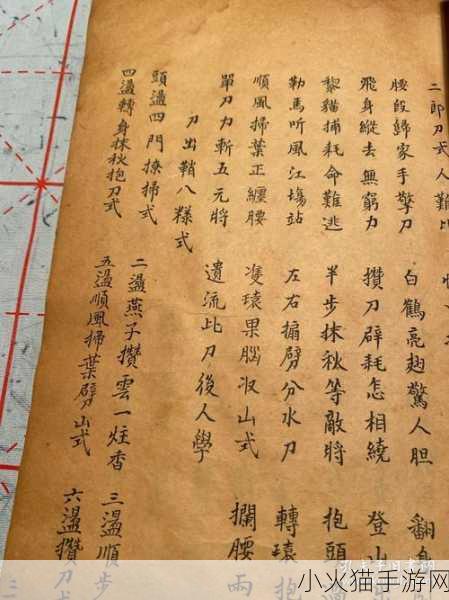 二郎刀天人難比
腰段歸家手擎刀 白鶴亮翅驚人胆 翻身
飛身縱去無窮力 攢刀辟耗怎相繞 登山
黎貓捕耗命難逃 半步抹秋等敵將 抱頭
勒馬听風江塲站 左右搧劈分水刀 轉瓌抱
順風掃葉正纏腰 雙瓌果腦収山式 攔腰兩
單刀力斬五元將 遺流比刀後人學
刀出鞘八樣式
頭盪四門撩掃式 二盪燕子攢雲一炷香 三盪順步
四盪轉身抹秋抱刀式 五盪順風掃葉劈山式 六盪攢刀式
小火猫手游网